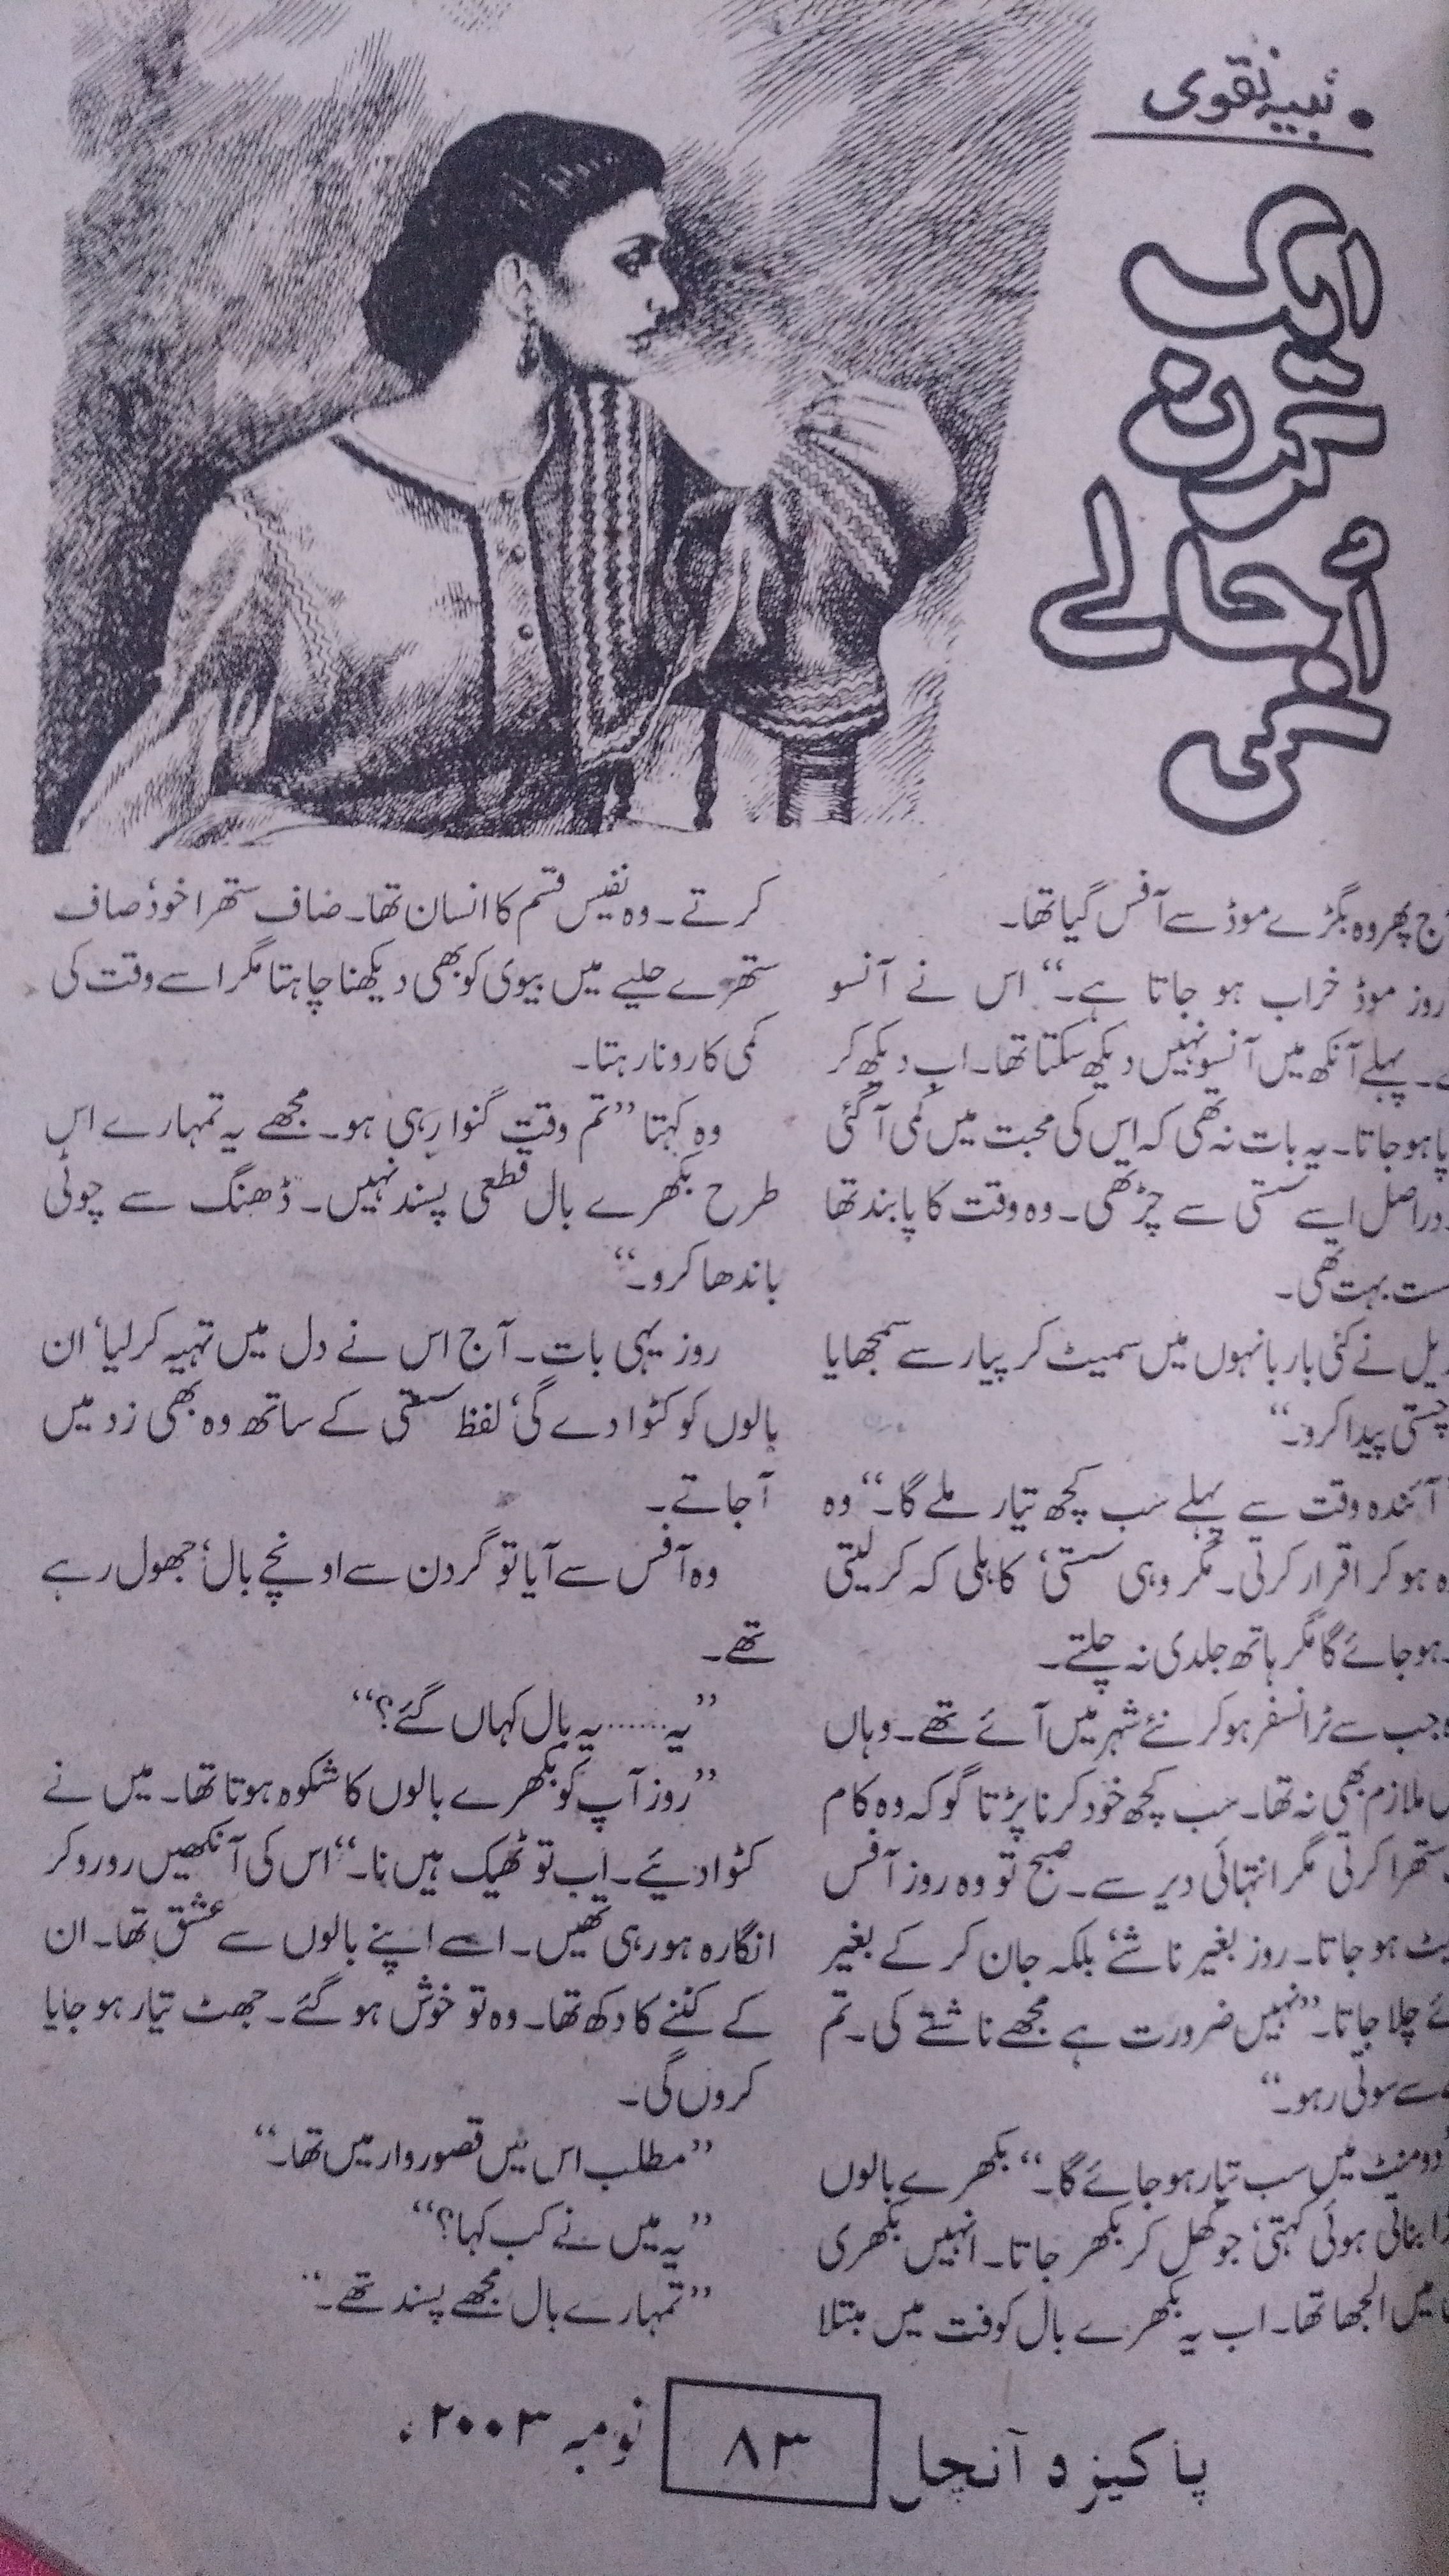 نبیہ نقوی
ایک
کرن
اُجالے
کی
پھر وہ بگڑے موڈ سے آفس گیا تھا۔
روز موڈ خراب ہو جاتا ہے۔“ اس نے آنسو
پہلے آنکھ میں آنسو نہیں دیکھ سکتا تھا۔ اب دیکھ کر
ہو جاتا۔ یہ بات نہ تھی کہ اس کی محبت میں کمی آ گئی
دراصل اسے سستی سے چڑ تھی۔ وہ وقت کا پابند تھا
بہت تھی۔
نے کئی بار بانہوں میں سمیٹ کر پیار سے سمجھایا
چستی پیدا کرو۔“
آئندہ وقت سے پہلے سب کچھ تیار ملے گا۔“ وہ
ہو کر اقرار کرتی۔ مگر وہی سستی‘ کاہلی کہ کر لیتی
ہو جائے گا مگر ہاتھ جلدی نہ چلتے۔
جب سے ٹرانسفر ہو کر نئے شہر میں آئے تھے۔ وہاں
ملازم بھی نہ تھا۔ سب کچھ خود کرنا پڑتا گو کہ وہ کام
ستھرا کرتی مگر انتہائی دیر سے۔ صبح تو وہ روز آفس
ہو جاتا۔ روز بغیر ناشتے‘ بلکہ جان کر کے بغیر
چلا جاتا۔ ”نہیں ضرورت ہے مجھے ناشتے کی۔ تم
سے سوتی رہو۔“
دو منٹ میں سب تیار ہو جائے گا۔“ بکھرے بالوں
بناتی ہوئی کہتی‘ جو کھل کر بکھر جاتا۔ انہیں بکھری
میں الجھا تھا۔ اب یہ بکھرے بال کوفت میں مبتلا
کرتے۔ وہ نفیس قسم کا انسان تھا۔ صاف ستھرا خود‘ صاف
ستھرے حلیے میں بیوی کو بھی دیکھنا چاہتا مگر اسے وقت کی
کمی کا رونا رہتا۔
وہ کہتا ”تم وقت گنوا رہی ہو۔ مجھے یہ تمہارے اس
طرح بکھرے بال قطعی پسند نہیں۔ ڈھنگ سے چوٹی
باندھا کرو۔“
روز یہی بات۔ آج اس نے دل میں تہیہ کر لیا‘ ان
بالوں کو کٹوا دے گی‘ لفظ سستی کے ساتھ وہ بھی زد میں
آ جاتے۔
وہ آفس سے آیا تو گردن سے اونچے بال‘ جھول رہے
تھے۔
”یہ...... یہ بال کہاں گئے؟“
”روز آپ کو بکھرے بالوں کا شکوہ ہوتا تھا۔ میں نے
کٹوا دیئے۔ اب تو ٹھیک ہیں نا۔“ اس کی آنکھیں رو رو کر
انگارہ ہو رہی تھیں۔ اسے اپنے بالوں سے عشق تھا۔ ان
کے کٹنے کا دکھ تھا۔ وہ تو خوش ہو گئے۔ جھٹ تیار ہو جایا
کروں گی۔
”مطلب اس میں قصوروار میں تھا۔“
”یہ میں نے کب کہا؟“
”تمہارے بال مجھے پسند تھے۔“
پاکیزہ آنچل ۸۳ نومبر ۲۰۰۳ء